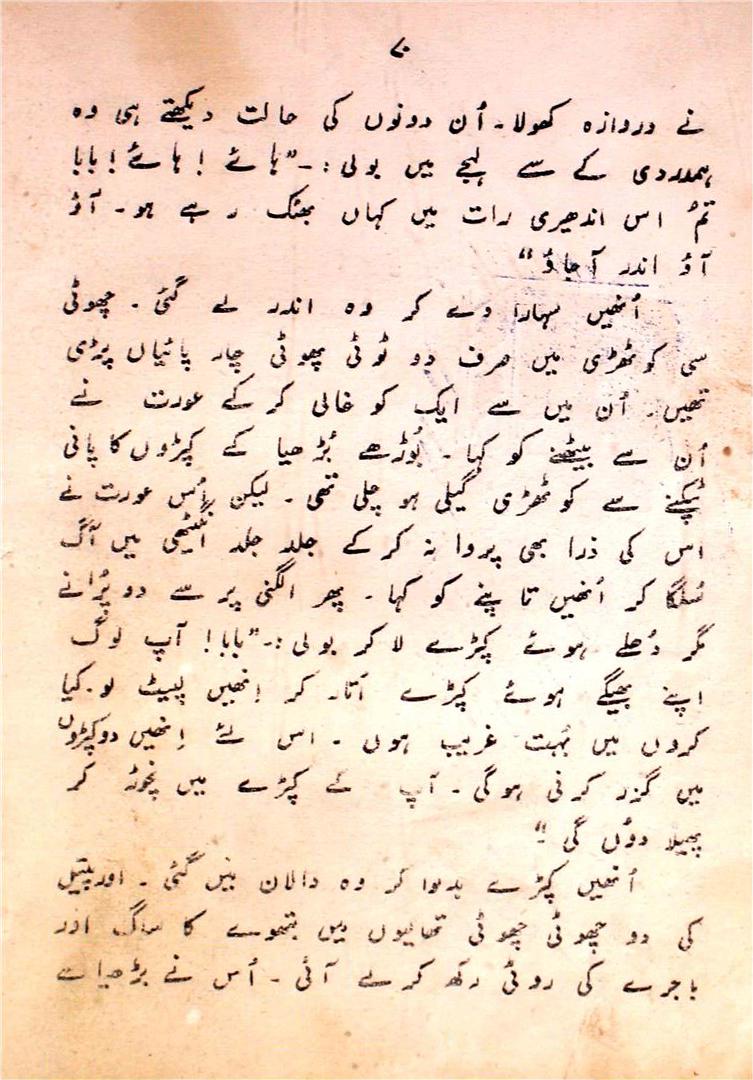 ۷
نے دروازہ کھولا۔ اُن دونوں کی حالت دیکھتے ہی وہ
ہمدردی کے سے لہجے میں بولی :۔ "ہائے ! ہائے ! بابا
تمُ اس اندھیری رات میں کہاں بھٹک رہے ہو۔ آؤ
آؤ اندر آجاؤ"
اُنھیں سہارا دے کر وہ اندر لے گئی۔ چھوٹی
سی کوٹھڑی میں صرف دو ٹوٹی پھوٹی چار پائیاں پڑی
تھیں۔ اُن میں سے ایک کو خالی کر کے عورت نے
اُن سے بیٹھنے کو کہا۔ بُوڑھے بُڑھیا کے کپڑوں کا پانی
ٹپکنے سے کوٹھڑی گیلی ہو چلی تھی۔ لیکن اُس عورت نے
اس کی ذرا بھی پروا نہ کر کے جلد جلد انگیٹھی میں آگ
سُلگا کر اُنھیں تاپنے کو کہا۔ پھر الگنی پر سے دو پُرانے
مگر دُھلے ہوئے کپڑے لا کر بولی :۔ "بابا! آپ لوگ
اپنے بھیگے ہوئے کپڑے اُتار کر اِنھیں لپیٹ لو۔ کیا
کروں میں بُہت غریب ہوں۔ اس لئے اِنھیں دو کپڑوں
میں گزر کرنی ہوگی۔ آپ کے کپڑے میں نچوڑ کر
پھیلا دوُں گی۔"
اُنھیں کپڑے بدلوا کر وہ دالان میں گئی۔ اور پیتل
کی دو چھوٹی چھوٹی تھالیوں میں بتھوے کا ساگ اور
باجرے کی روٹی رکھ کر لے آئی۔ اُس نے بڑھیا سے